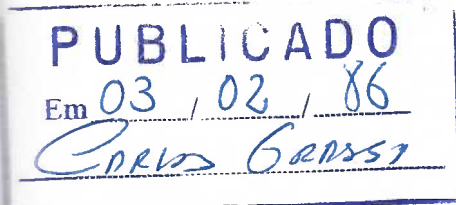 PUBLICADO
Em 03 / 02 / 86
CARLOS GRASSI